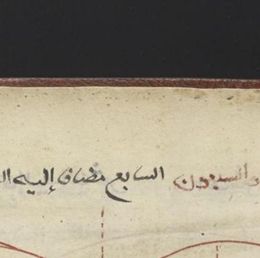 والسبعون السابع مضاف إليه